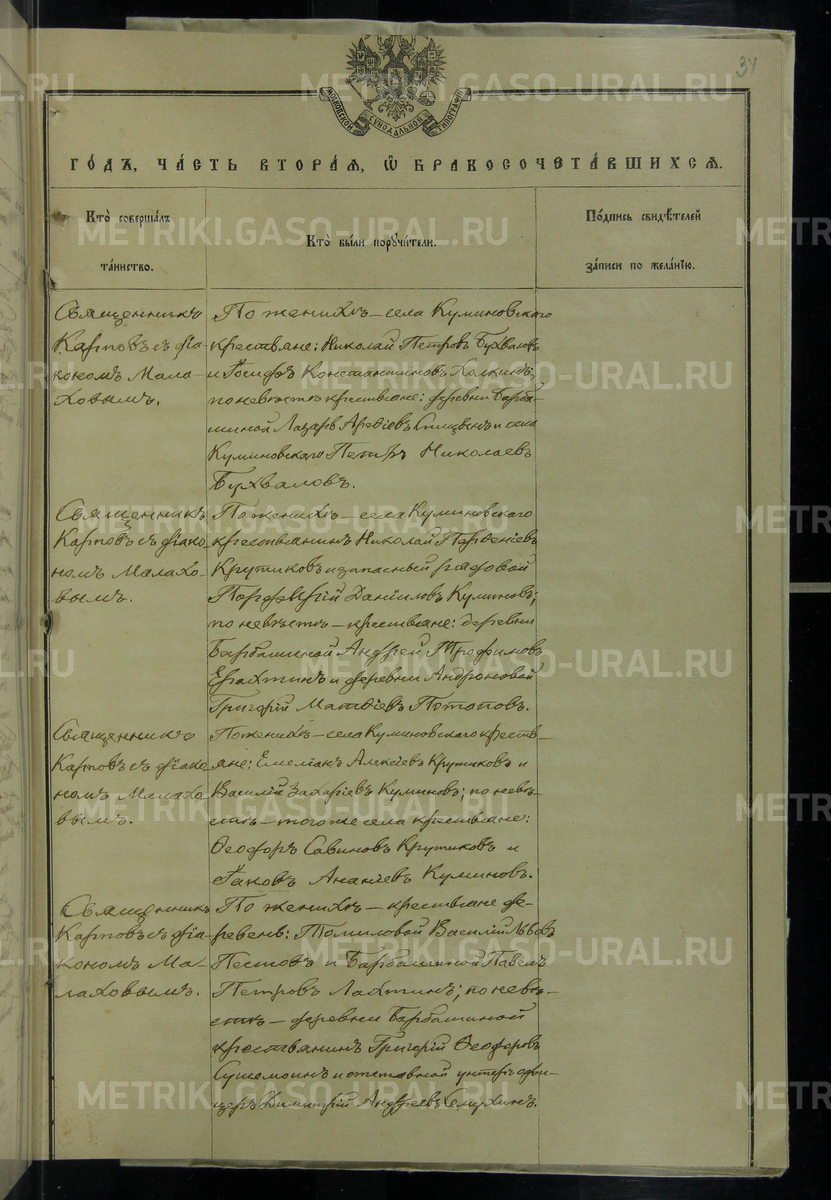 34
МОСКОВСКОЙ СѴНОДАЛЬНОЙ ТИПОГРАФІИ
ГО́ДЪ, ЧА́СТЬ ВТОРА́Ѧ, Ѽ БРАКОСОЧЕТА́ВШИХСѦ.
Кто̀ соверша́лъ
та́инство.
Кто̀ бы́ли порꙋчи́тели.
По́дпись свидѣ́телей
за́писи по жела́нїю.
Священникъ
Карповъ съ діа-
кономъ Мала-
ховымъ.
По женихѣ – села Куминовскаго
крестьяне: Николай Петровъ Бухваловъ
и Іосифъ Константиновъ
по невѣстѣ крестьяне: деревни Барба-
шиной Лазарь и села
Куминовскаго Петръ Николаевъ
Бухваловъ.
Священникъ
Карповъ съ діако-
номъ Малахо-
вымъ.
По женихѣ – села Куминовскаго
крестьянинъ Николай Парѳеніевъ
Крутиковъ и запасный рядовой
Порфирій Даніиловъ Куминовъ;
по невѣстѣ – крестьяне: деревни
Барбашиной Андрей Трофимовъ
и деревни Андроновой
Григорій Матвіевъ Потаповъ.
Священникъ
Карповъ съ діако-
номъ Малахо-
вымъ.
По женихѣ – села Куминовскаго кресть-
яне: Емеліанъ Алексіевъ Крутиковъ и
Василій Захаріевъ Куминовъ; по невѣ-
стѣ – того же села крестьяне:
Ѳеодоръ Савиновъ Крутиковъ и
Іаковъ Ананіевъ Куминовъ.
Священникъ
Карповъ съ діа-
кономъ Ма-
лаховымъ.
По женихѣ – крестьяне де-
ревень: Томиловой Василій Львовъ
Пестовъ и Барбашиной Павелъ
Петровъ Лахтинъ; по невѣ-
стѣ – деревни Барбашиной
крестьянинъ Григорій Ѳеодоровъ
и отставной унтеръ офи-
церъ Димитрій Андреевъ
METRIKI.GASO-URAL.RU